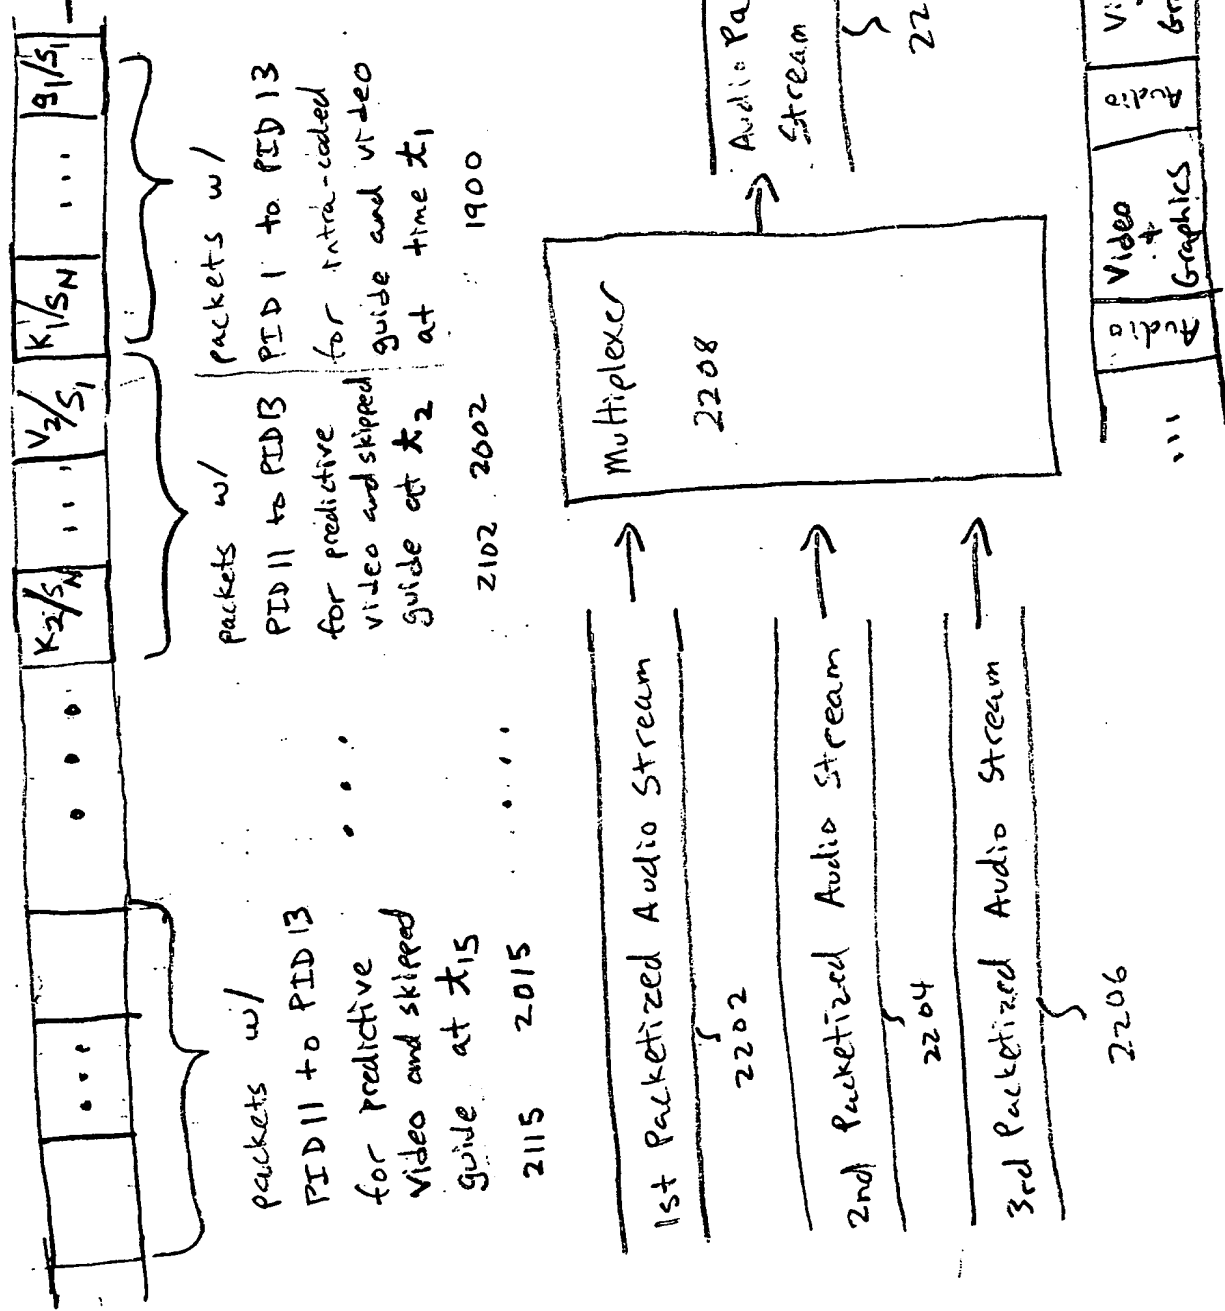 ... K2/SN ... V2/S1 K1/SN ... g1/S1
packets w/
PID11 to PID13
for predictive
video and skipped
guide at t15
2115 2015
...
....
packets w/
PID11 to PID13
for predictive
video and skipped
guide at t2
2102 2002
packets w/
PID1 to PID13
for intra-coded
guide and video
at time t1
1900
1st Packetized Audio Stream
2202
2nd Packetized Audio Stream
2204
3rd Packetized Audio Stream
2206
Multiplexer
2208
Audio Pa
Stream
22
...
Audio
Video
+
Graphics
Audio
Vi
Gra